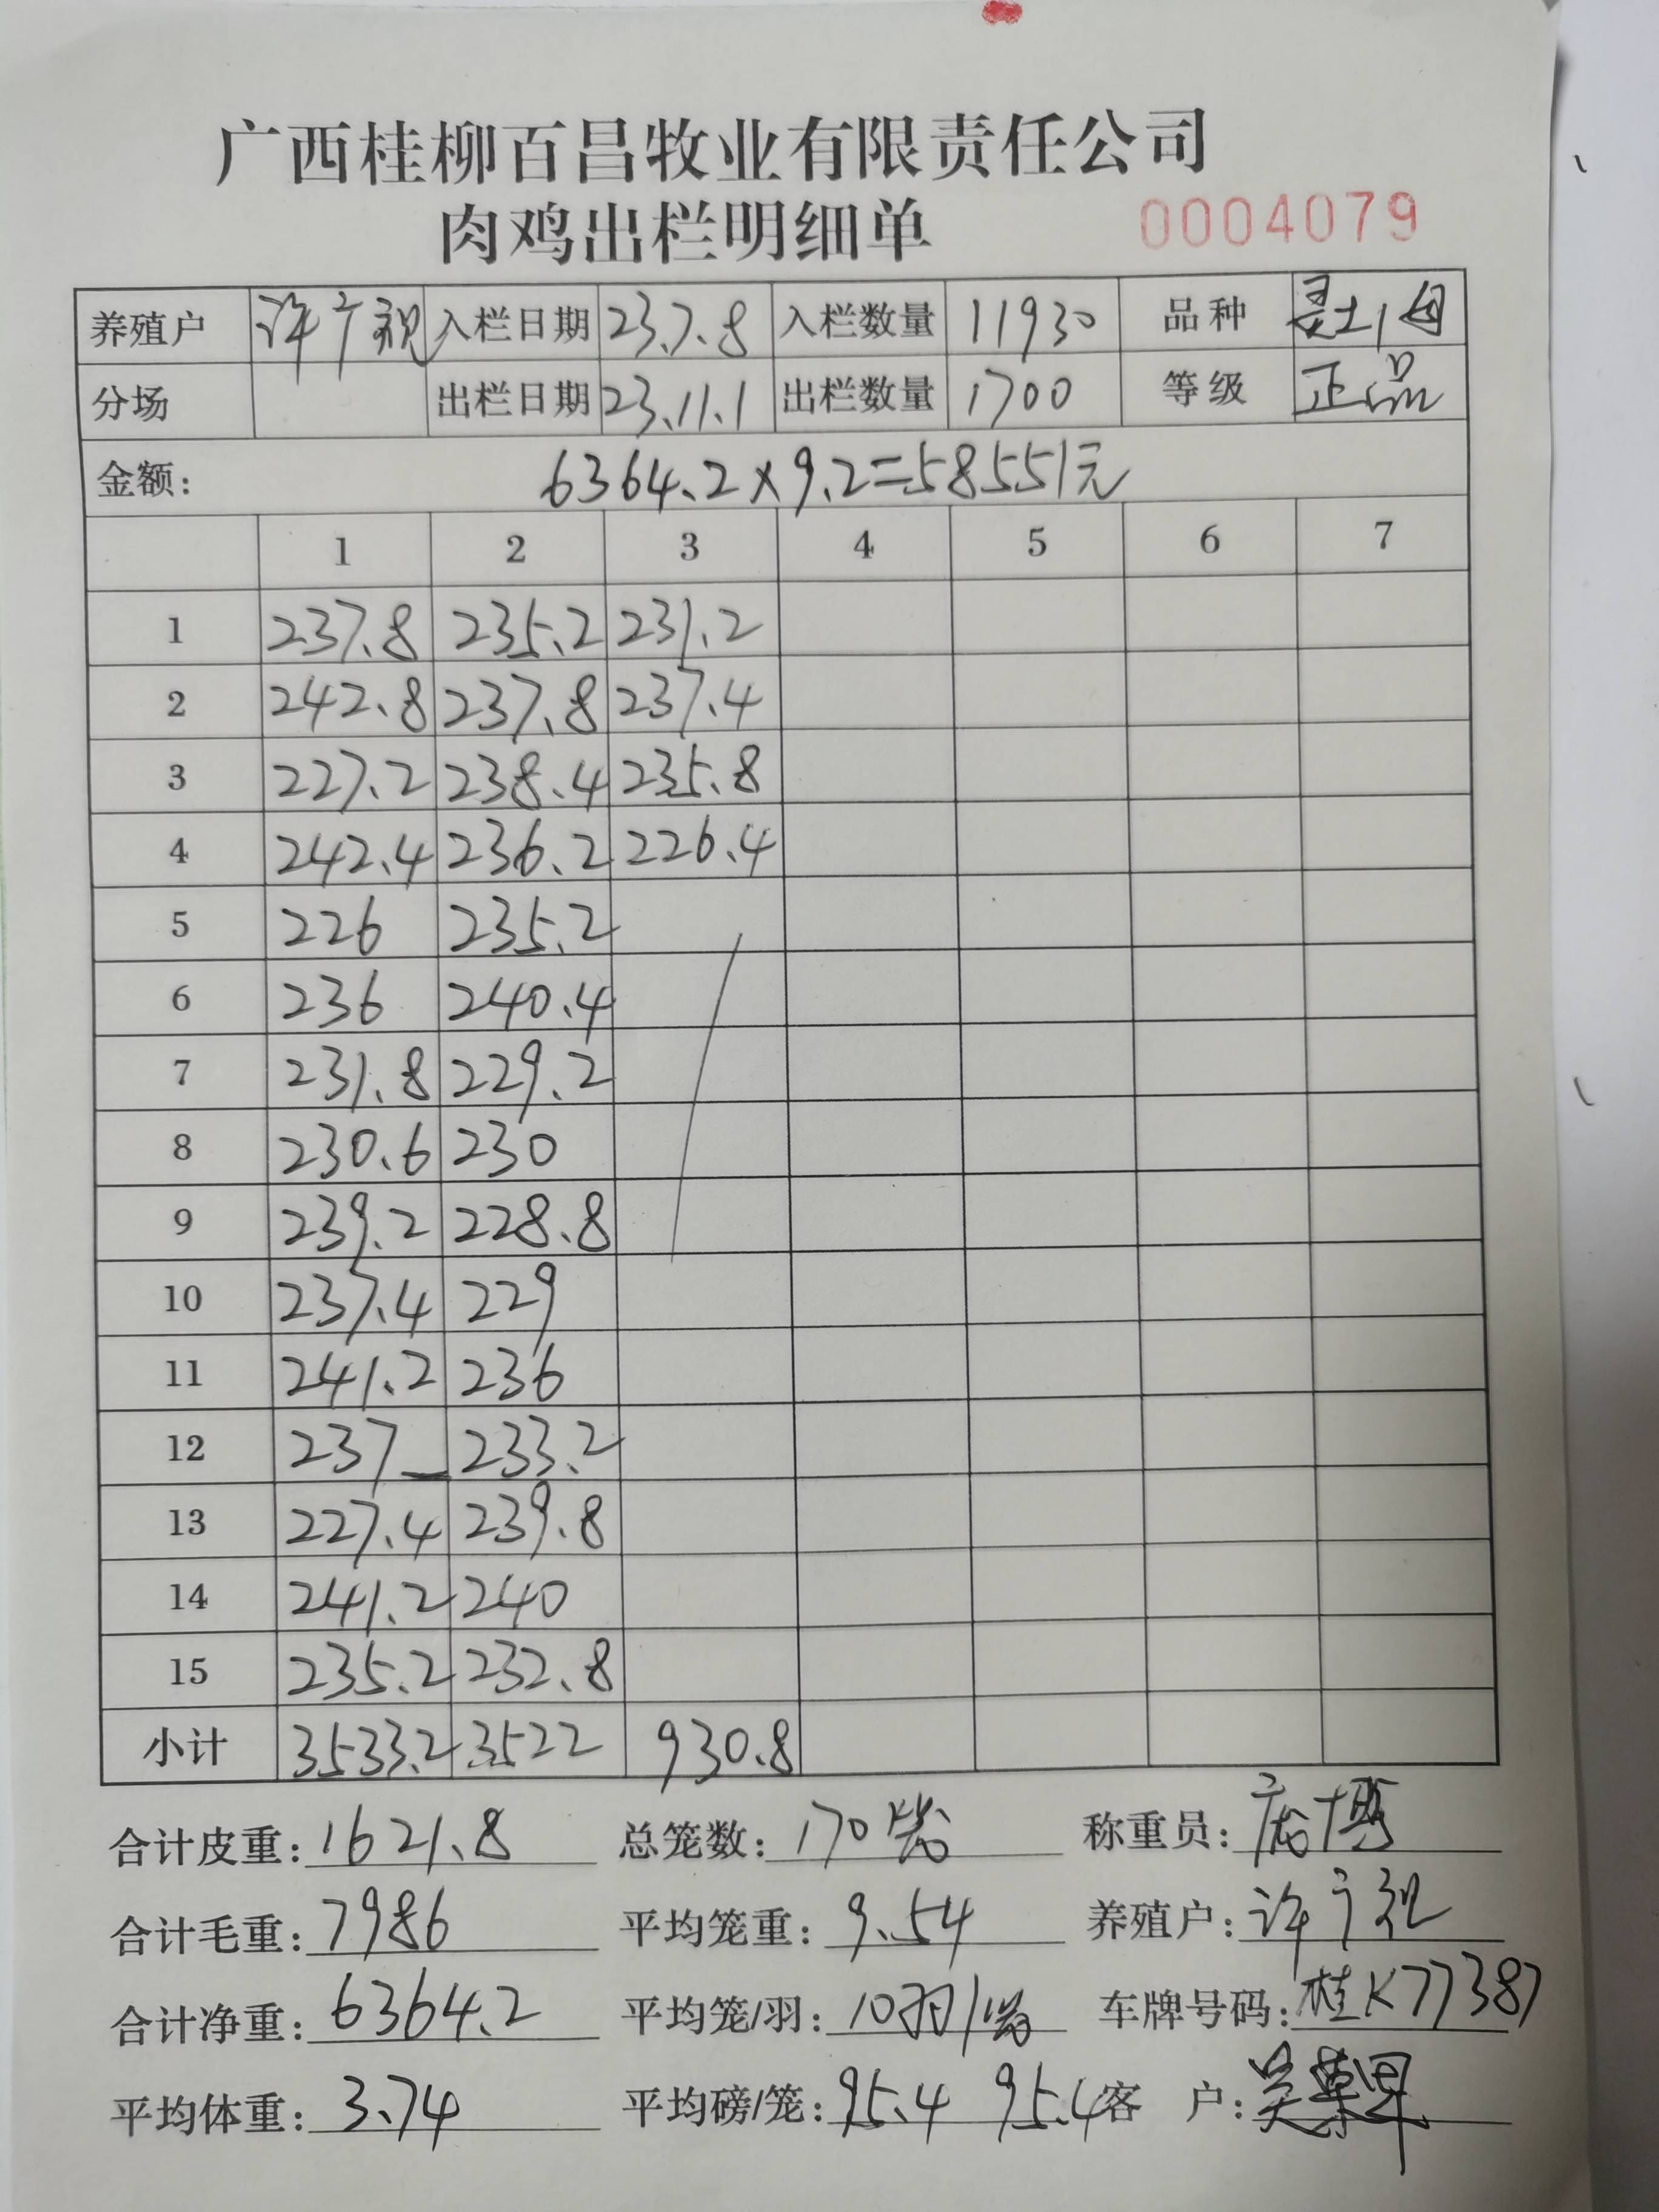 广西桂柳百昌牧业有限责任公司
肉鸡出栏明细单 0004079
养殖户 许广 入栏日期 23.7.8 入栏数量 11930 品种
分场 出栏日期 23.11.1 出栏数量 1700 等级 正品
金额: 6364.2×9.2=58551元
1 2 3 4 5 6 7
1 237.8 235.2 231.2
2 242.8 237.8 237.4
3 227.2 238.4 235.8
4 242.4 236.2 226.4
5 226 235.2
6 236 240.4
7 231.8 229.2
8 230.6 230
9 239.2 228.8
10 237.4 229
11 241.2 236
12 237 233.2
13 227.4 239.8
14 241.2 240
15 235.2 232.8
小计 3533.2 3522 930.8
合计皮重: 1621.8 总笼数: 170笼 称重员: 庞博
合计毛重: 7986 平均笼重: 9.54 养殖户: 许广
合计净重: 6364.2 平均笼/羽: 10羽/笼 车牌号码: 桂K77387
平均体重: 3.74 平均磅/笼: 95.4 95.4 客 户: 吴